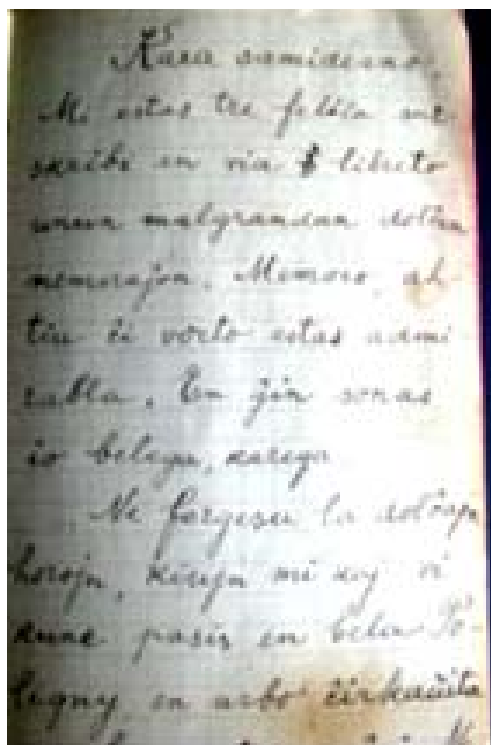 Kara samideano,
Mi estas tre feliĉa
skribi en via libreto
unun malgrandan dolĉan
memoraĵon. Memoro, ah
tiu ĉi vorto estas admi
rabla. En ĝin sonas
io belega, karega
Ne forgesu la dolĉajn
horojn, kiujn mi kaj vi
kune pasis en bela Po-
legny, en arbo ĉirkaŭita